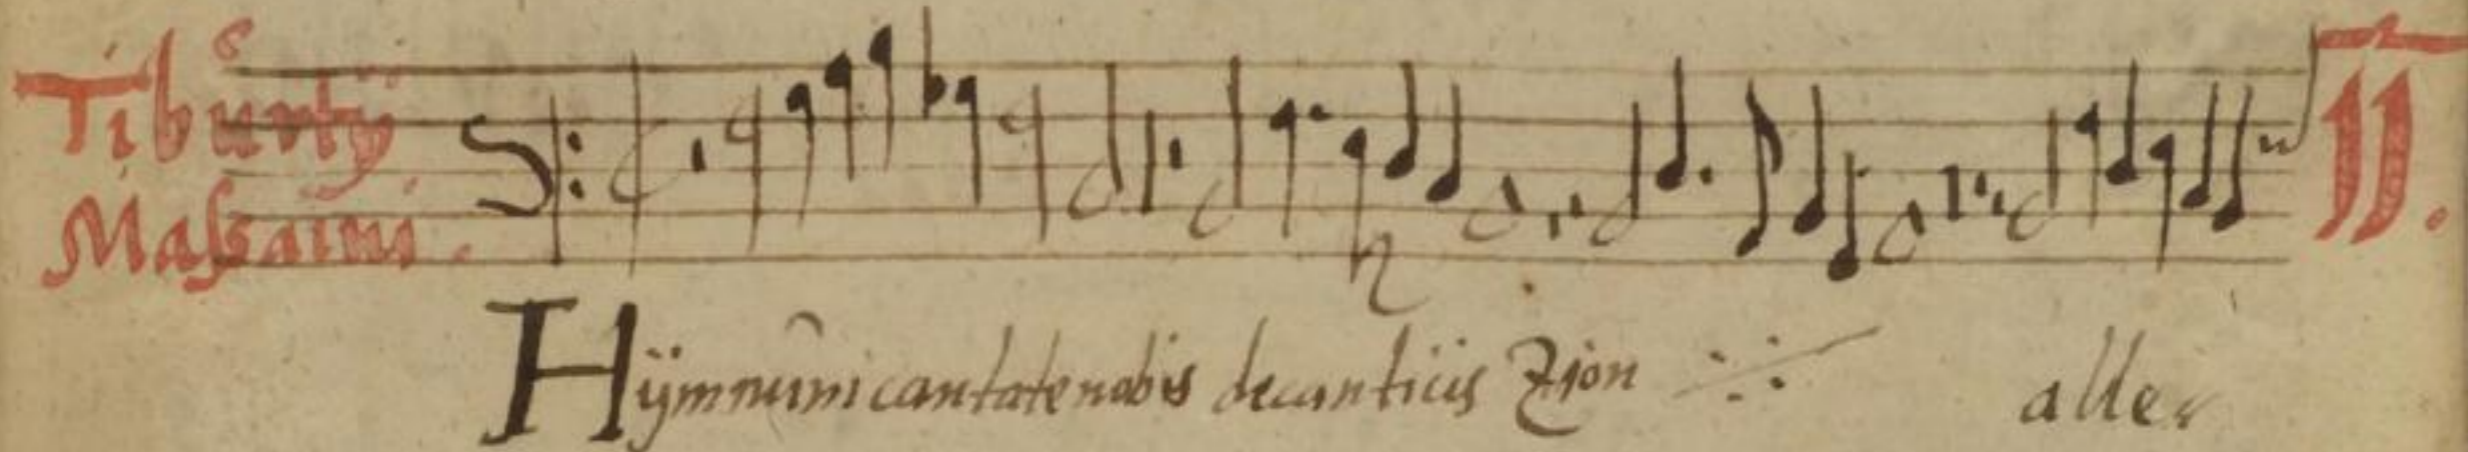 Tiburtij
Massaini.
II.
Hÿmnum cantate nobis de canticis Zion alle